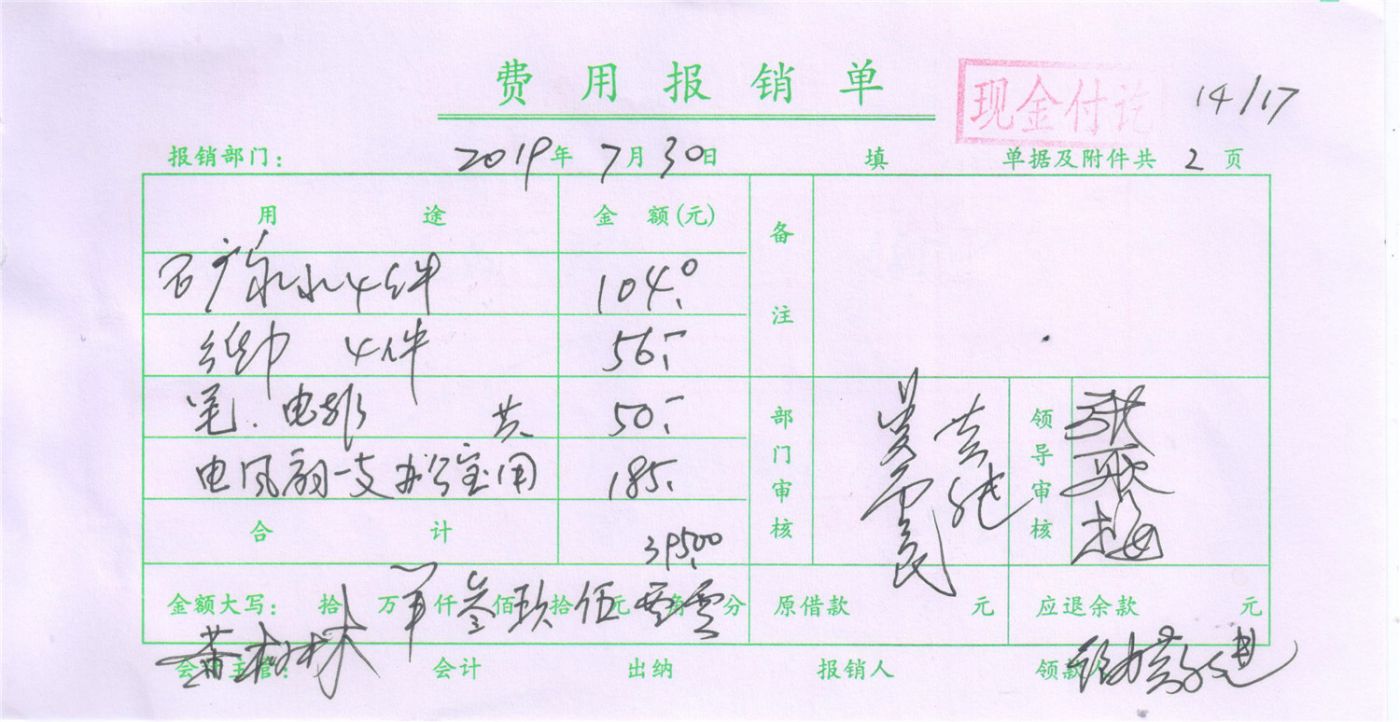 费用报销单
现金付讫
14/17
报销部门: 2019年7月30日 填 单据及附件共2页
用途 金额(元) 备注
矿泉水4件 104.0
纸巾 4件 56.-
笔.电 共 50.-
部门审核 领导审核
电风扇一支办公室用 185.
合计 395.00
金额大写: 拾万仟叁佰玖拾伍元零角零分 原借款 元 应退余款 元
会计主管: 会计 出纳 报销人 领款